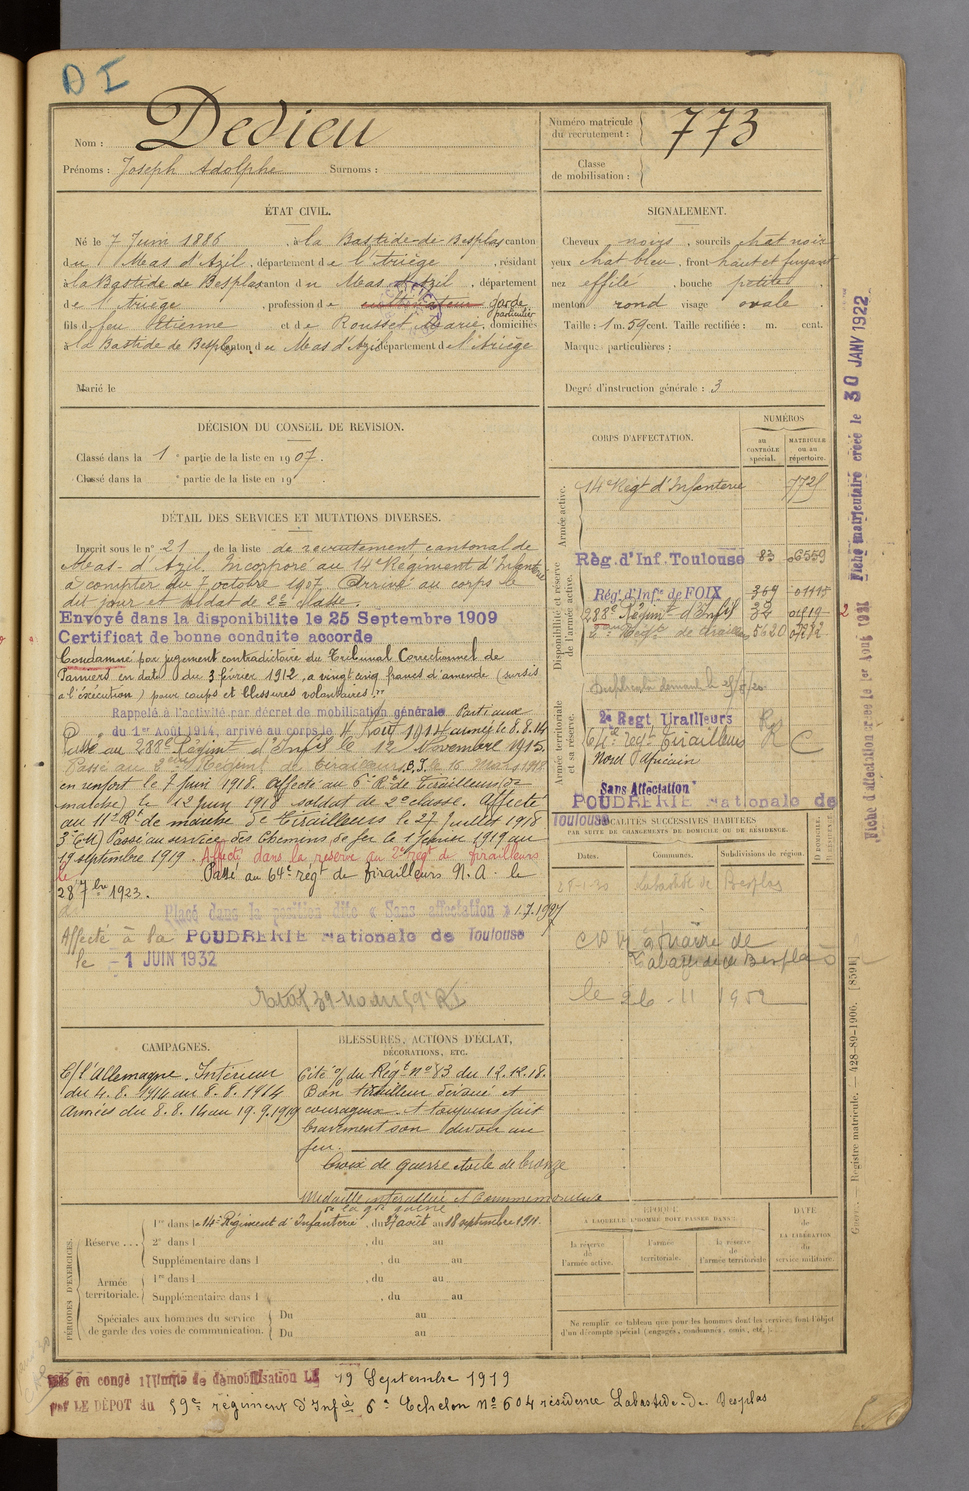 D I
Nom : Dedieu
Prénoms : Joseph Adolphe Surnoms :
Numéro matricule du recrutement : 773
Classe de mobilisation :
ÉTAT CIVIL.
Né le 7 Juin 1886, à la Bastide-de-Besplas canton
du Mas d'Azil, département de l'Ariège, résidant
à la Bastide de Besplas canton du Mas d'Azil, département
de l'Ariège, profession de cultivateur garde particulier
fils de feu Etienne et de Rousset Marie, domiciliés
à La Bastide de Besplas canton du Mas d'Azil département de l'Ariège
Marié le
SIGNALEMENT.
Cheveux noirs, sourcils chat noir
yeux chat bleu, front haut et fuyant
nez effilé, bouche petite
menton rond visage ovale
Taille : 1 m. 59 cent. Taille rectifiée : m. cent.
Marques particulières :
Degré d'instruction générale : 3
DÉCISION DU CONSEIL DE REVISION.
Classé dans la 1e partie de la liste en 1907.
Classé dans la e partie de la liste en 19 .
DÉTAIL DES SERVICES ET MUTATIONS DIVERSES.
Inscrit sous le n° 21 de la liste de recrutement cantonal de
Mas-d'Azil. Incorporé au 14e Régiment d'Infanterie
à compter du 7 octobre 1907. Arrivé au corps le
dit jour et soldat de 2e classe.
Envoyé dans la disponibilite le 25 Septembre 1909
Certificat de bonne conduite accorde
Condamné par jugement contradictoire du Tribunal Correctionnel de
Pamiers en date du 3 février 1912, à vingt cinq francs d'amende (sursis
à l'exécution) pour coups et blessures volontaires.
Rappelé à l'activité par décret de mobilisation générale Parti aux
du 1er Août 1914, arrivé au corps le 4 Août 1914 armées le 8.8.14
Passé au 288e Régiment d'Infie le 12 Novembre 1915.
Passé au 2e Régiment de tirailleurs le 16 Mars 1918
en renfort le 7 Juin 1918. Affecté au 6e Rt de Tirailleurs (de
marche) le 12 Juin 1918 soldat de 2e classe. Affecté
au 11e Rt de marche de tirailleurs le 27 Juillet 1918
Passé au service des Chemins de fer le 1 février 1919 au
19 septembre 1919. Affecté dans la réserve au 2e régt de tirailleurs
le Passé au 64e régt de tirailleurs N.A. le
28 7bre 1923.
Placé dans la position dite « Sans affectation » 1.7.1927
Affecté à la POUDRERIE Nationale de Toulouse
le -1 JUIN 1932
CORPS D'AFFECTATION.
NUMÉROS
au CONTRÔLE spécial.
MATRICULE ou au répertoire.
Armée active.
14e Régt d'Infanterie
Disponibilité et réserve de l'armée active.
Règ. d'Inf. Toulouse 83 06559
Rég. d'Infie de FOIX 309
288e Régimt d'Infie 32
2e Régt de tirailleurs 5620
Armée territoriale et sa réserve.
2e Regt Tirailleurs
64e régt Tirailleurs
Nord Africain
Sans Affectation
POUDRERIE Nationale de
Toulouse
LOCALITÉS SUCCESSIVES HABITÉES
PAR SUITE DE CHANGEMENTS DE DOMICILE OU DE RÉSIDENCE.
Dates. Communes. Subdivisions de région. D DOMICILE. R RÉSIDENCE.
Labastide de Besplas
Mairie de
Labastide de Besplas
le 26-11 1952
CAMPAGNES.
C/ l'Allemagne. Intérieur
du 4.8.1914 au 8.8.1914
Armées du 8.8.14 au 19.9.1919
BLESSURES, ACTIONS D'ÉCLAT,
DÉCORATIONS, ETC.
Cité o/ du Régt n° 83 du 12.12.18.
Bon tirailleur dévoué et
courageux. A toujours fait
bravement son devoir au
feu.
Croix de guerre étoile de bronze
Médaille interalliée et Commémorative
de la gde guerre
PÉRIODES D'EXERCICES.
Réserve... 1re dans le 14e Régiment d'Infanterie, du 27 août au 18 septembre 1911.
2e dans l , du au
Supplémentaire dans l , du au
Armée territoriale. 1re dans l , du au
Supplémentaire dans l , du au
Spéciales aux hommes du service de garde des voies de communication. Du au
Du au
ÉPOQUE
À LAQUELLE L'HOMME DOIT PASSER DANS :
la réserve de l'armée active.
l'armée territoriale.
la réserve de l'armée territoriale
DATE de LA LIBÉRATION du service militaire.
Ne remplir ce tableau que pour les hommes dont les services font l'objet
d'un décompte spécial (engagés, condamnés, omis, etc.)
en congé illimité de démobilisation LE 19 Septembre 1919
par LE DÉPOT du 59e régiment d'Infie 6e Echelon N° 604 résidence Labastide-de-Besplas
Fiche matriculaire créée le 30 JANV 1922
Fiche d'affectation créée le 1er Août 1921
Registre matricule. — 428-89-1906. [8591]